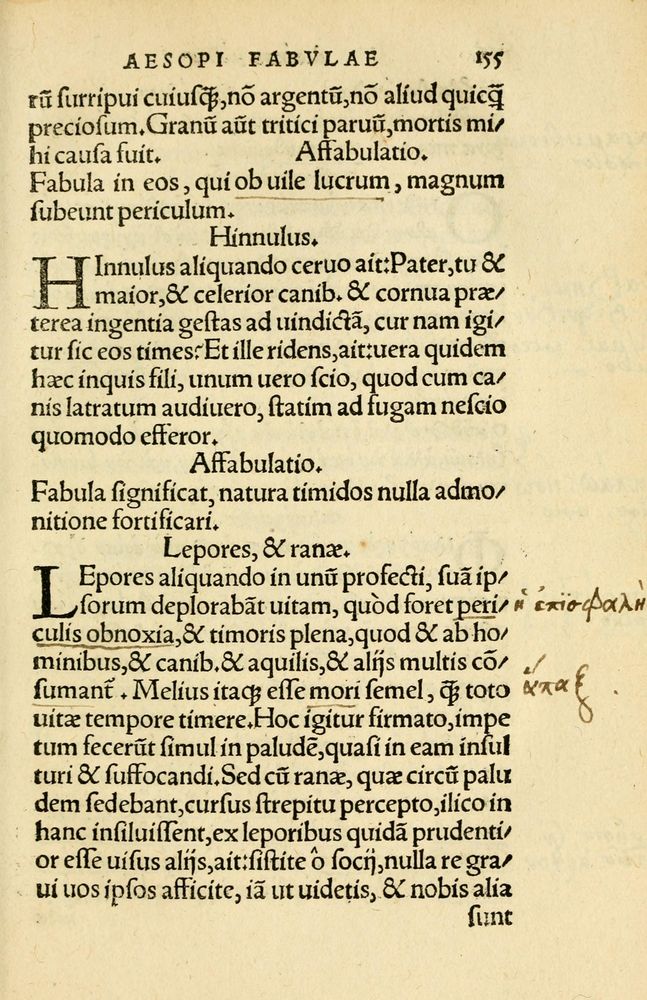 AESOPI FABVLAE 155
rū ſurripui cuiuſq̃,nō argentū,nō aliud quicq̃
precioſum.Granū aūt tritici paruū,mortis mi/
hi cauſa fuit. Affabulatio.
Fabula in eos, qui ob uile lucrum, magnum
ſubeunt periculum.
Hinnulus.
HInnulus aliquando ceruo ait:Pater,tu &
maior,& celerior canib. & cornua præ/
terea ingentia geſtas ad uindictā, cur nam igi/
tur ſic eos times?Et ille ridens,ait:uera quidem
hæc inquis fili, unum uero ſcio, quod cum ca/
nis latratum audiuero, ſtatim ad fugam neſcio
quomodo efferor.
Affabulatio.
Fabula ſignificat, natura timidos nulla admo/
nitione fortificari.
Lepores, & ranæ.
LEpores aliquando in unū profecti, ſuā ip/
ſorum deplorabāt uitam, quòd foret peri/ ἢ ἐπισφαλὴ
culis obnoxia,& timoris plena,quod & ab ho/
minibus,& canib.& aquilis,& alijs multis cō/
ſumant̃. Melius itaq; eſſe mori ſemel, q̃ toto ἅπαξ
uitæ tempore timere.Hoc igitur firmato,impe
tum fecerūt ſimul in paludē,quaſi in eam inſul
turi & ſuffocandi.Sed cū ranæ, quæ circū palu
dem ſedebant,curſus ſtrepitu percepto,ilico in
hanc inſiluiſſent,ex leporibus quidā prudenti/
or eſſe uiſus alijs,ait:ſiſtite ô ſocij,nulla re gra/
ui uos ipſos afficite, iā ut uidetis, & nobis alia
ſunt